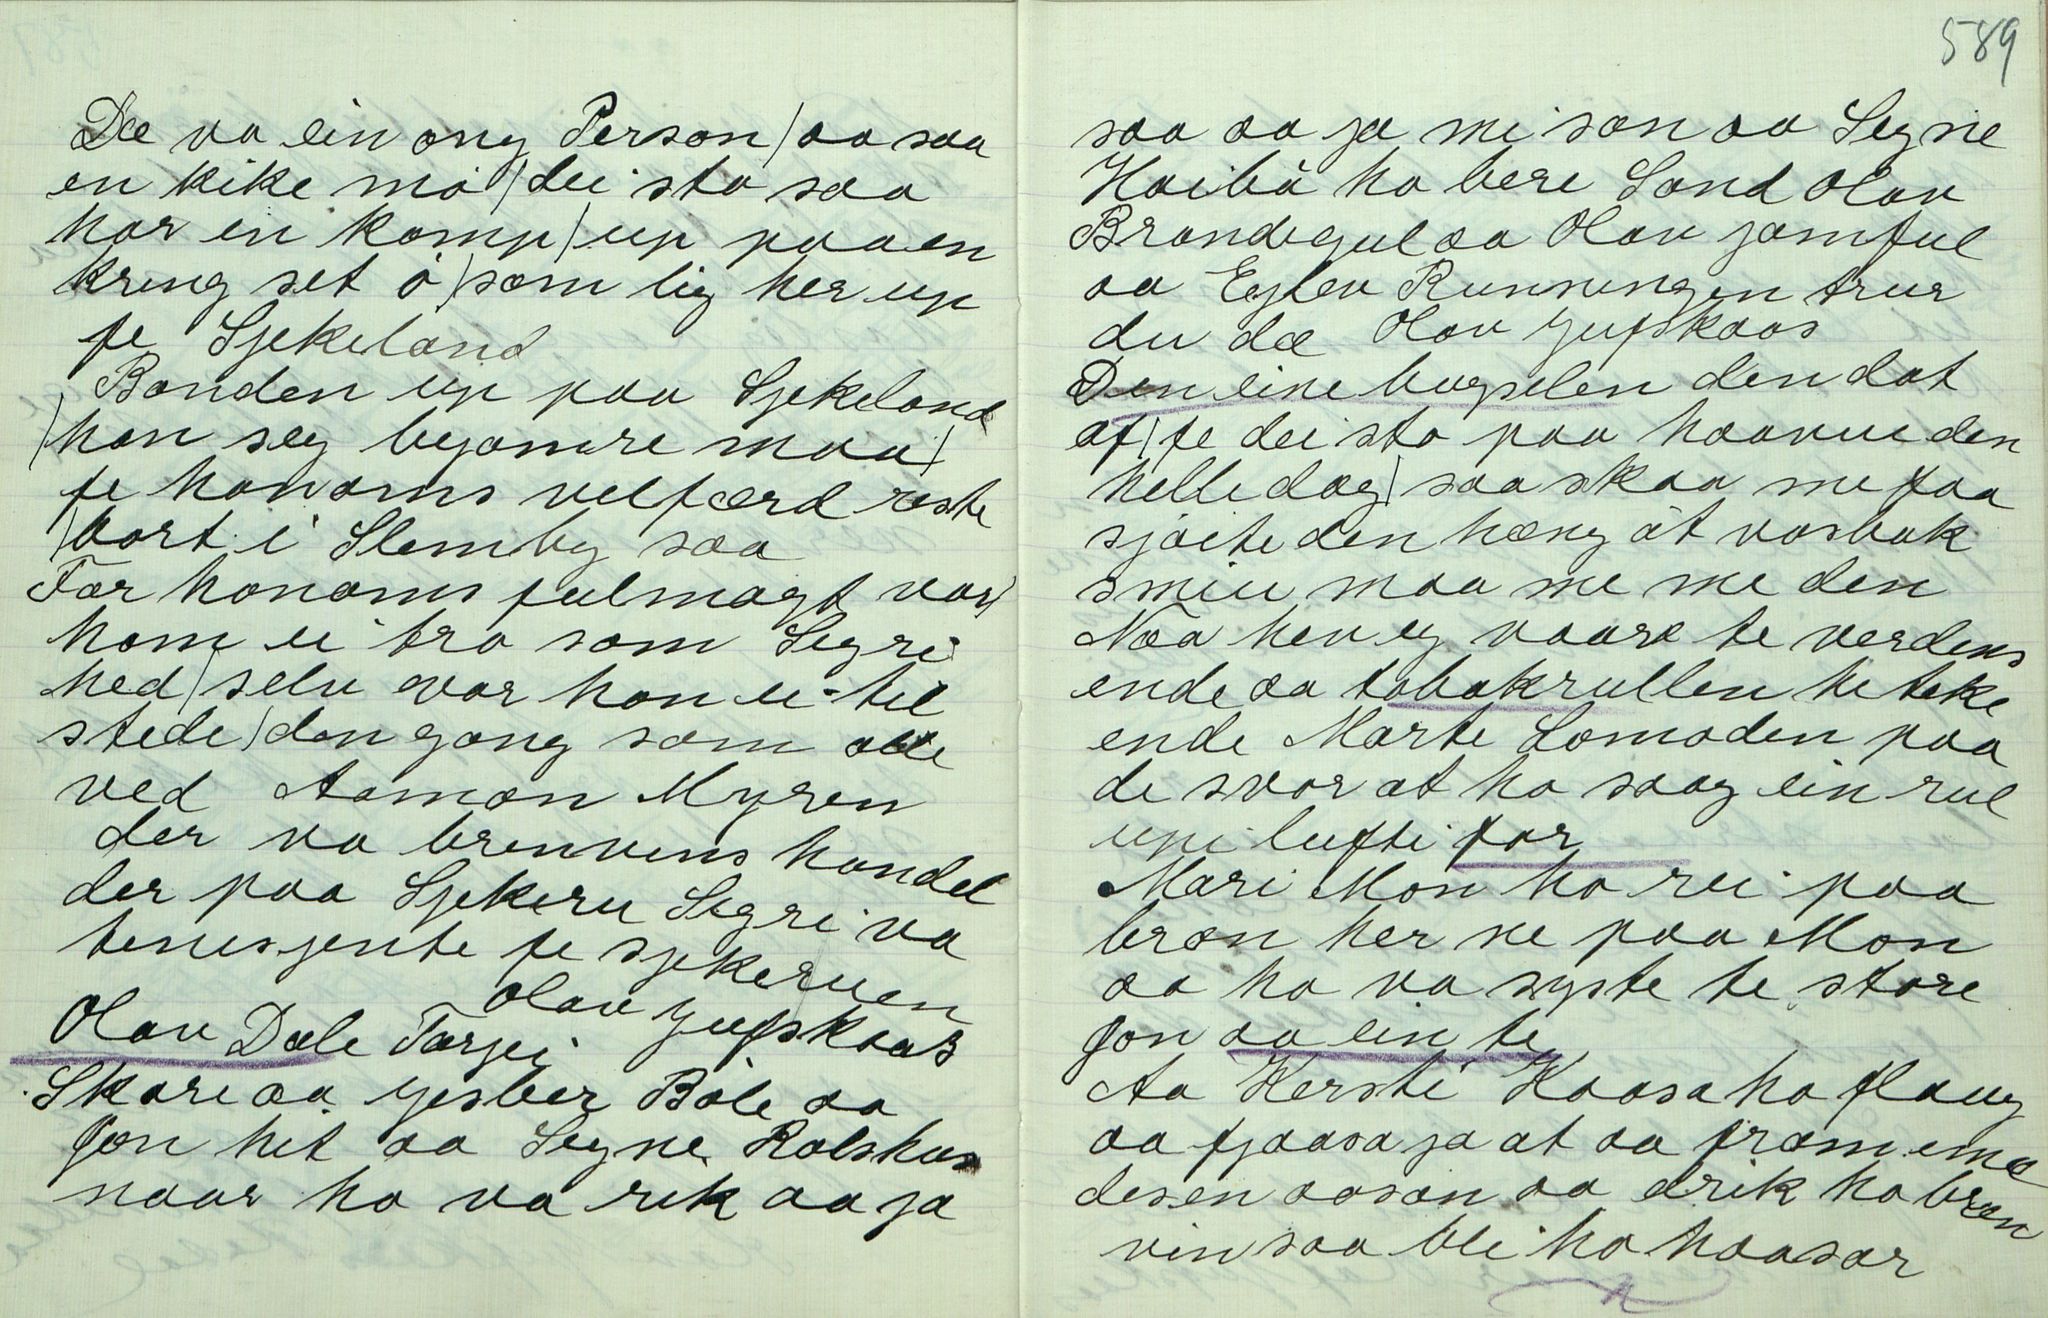 Dæ va ein ong Person / aa saa
en kike mo / dei sto saa
har en komp / up paa en
kring set o / som lig her up
fe Sjekeland
Bonden up paa Sjekeland
/ han seg bejamre maa /
fe honoms velfærd reste
/ bort i Slemby saa
For honoms fulmagt var /
hom ei tro som Segri
hed / selv var han ei til
stede / den gang som alle
ved Aamon Myren
der va brenvins handel
der paa Sjekeru Segri va
tenesjente fe sjekeruen
Olav Jufskaas
Olav Dale Tarjei
Skare aa Jesber Böle aa
Jon het aa Segne Rolskus
naar ho va rik aa ja
589
saa aa ja mi son aa Segne
Haibö ho bere Sand Olav
Brandegul aa Olav jamful
aa Eylev Runningen trur
du dæ Olav Jufskaas
Den eine bugselen den dat
af / fe dei sto paa haavue den
helle dag / saa skaa me faa
sjöite den hæng öt vosbak
smiu maa me me den
Naa hev eg vaare te verdens
ende aa tobakrullen he teke
ende Marte Lomoden paa
de svor at ho saag ein rul
upi lufti for
Mari Mon ho rei paa
bron her ne paa Mon
aa ho va syste te store
Jon aa ein te
Aa Kersti Kaasa ho flaug
aa fjaasa ja at aa fram
desen aason aa drik ho bren
vin saa bli ho haasar